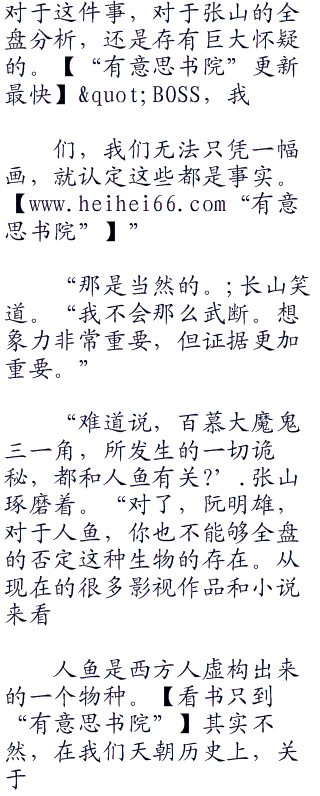 对于这件事，对于张山的全
盘分析，还是存有巨大怀疑
的。【“有意思书院”更新
最快】&quot;BOSS，我
们，我们无法只凭一幅
画，就认定这些都是事实。
【www.heihei66.com“有意
思书院”】”
“那是当然的。;长山笑
道。“我不会那么武断。想
象力非常重要，但证据更加
重要。”
“难道说，百慕大魔鬼
三一角，所发生的一切诡
秘，都和人鱼有关?’.张山
琢磨着。“对了，阮明雄，
对于人鱼，你也不能够全盘
的否定这种生物的存在。从
现在的很多影视作品和小说
来看
人鱼是西方人虚构出来
的一个物种。【看书只到
“有意思书院”】其实不
然，在我们天朝历史上，关
于